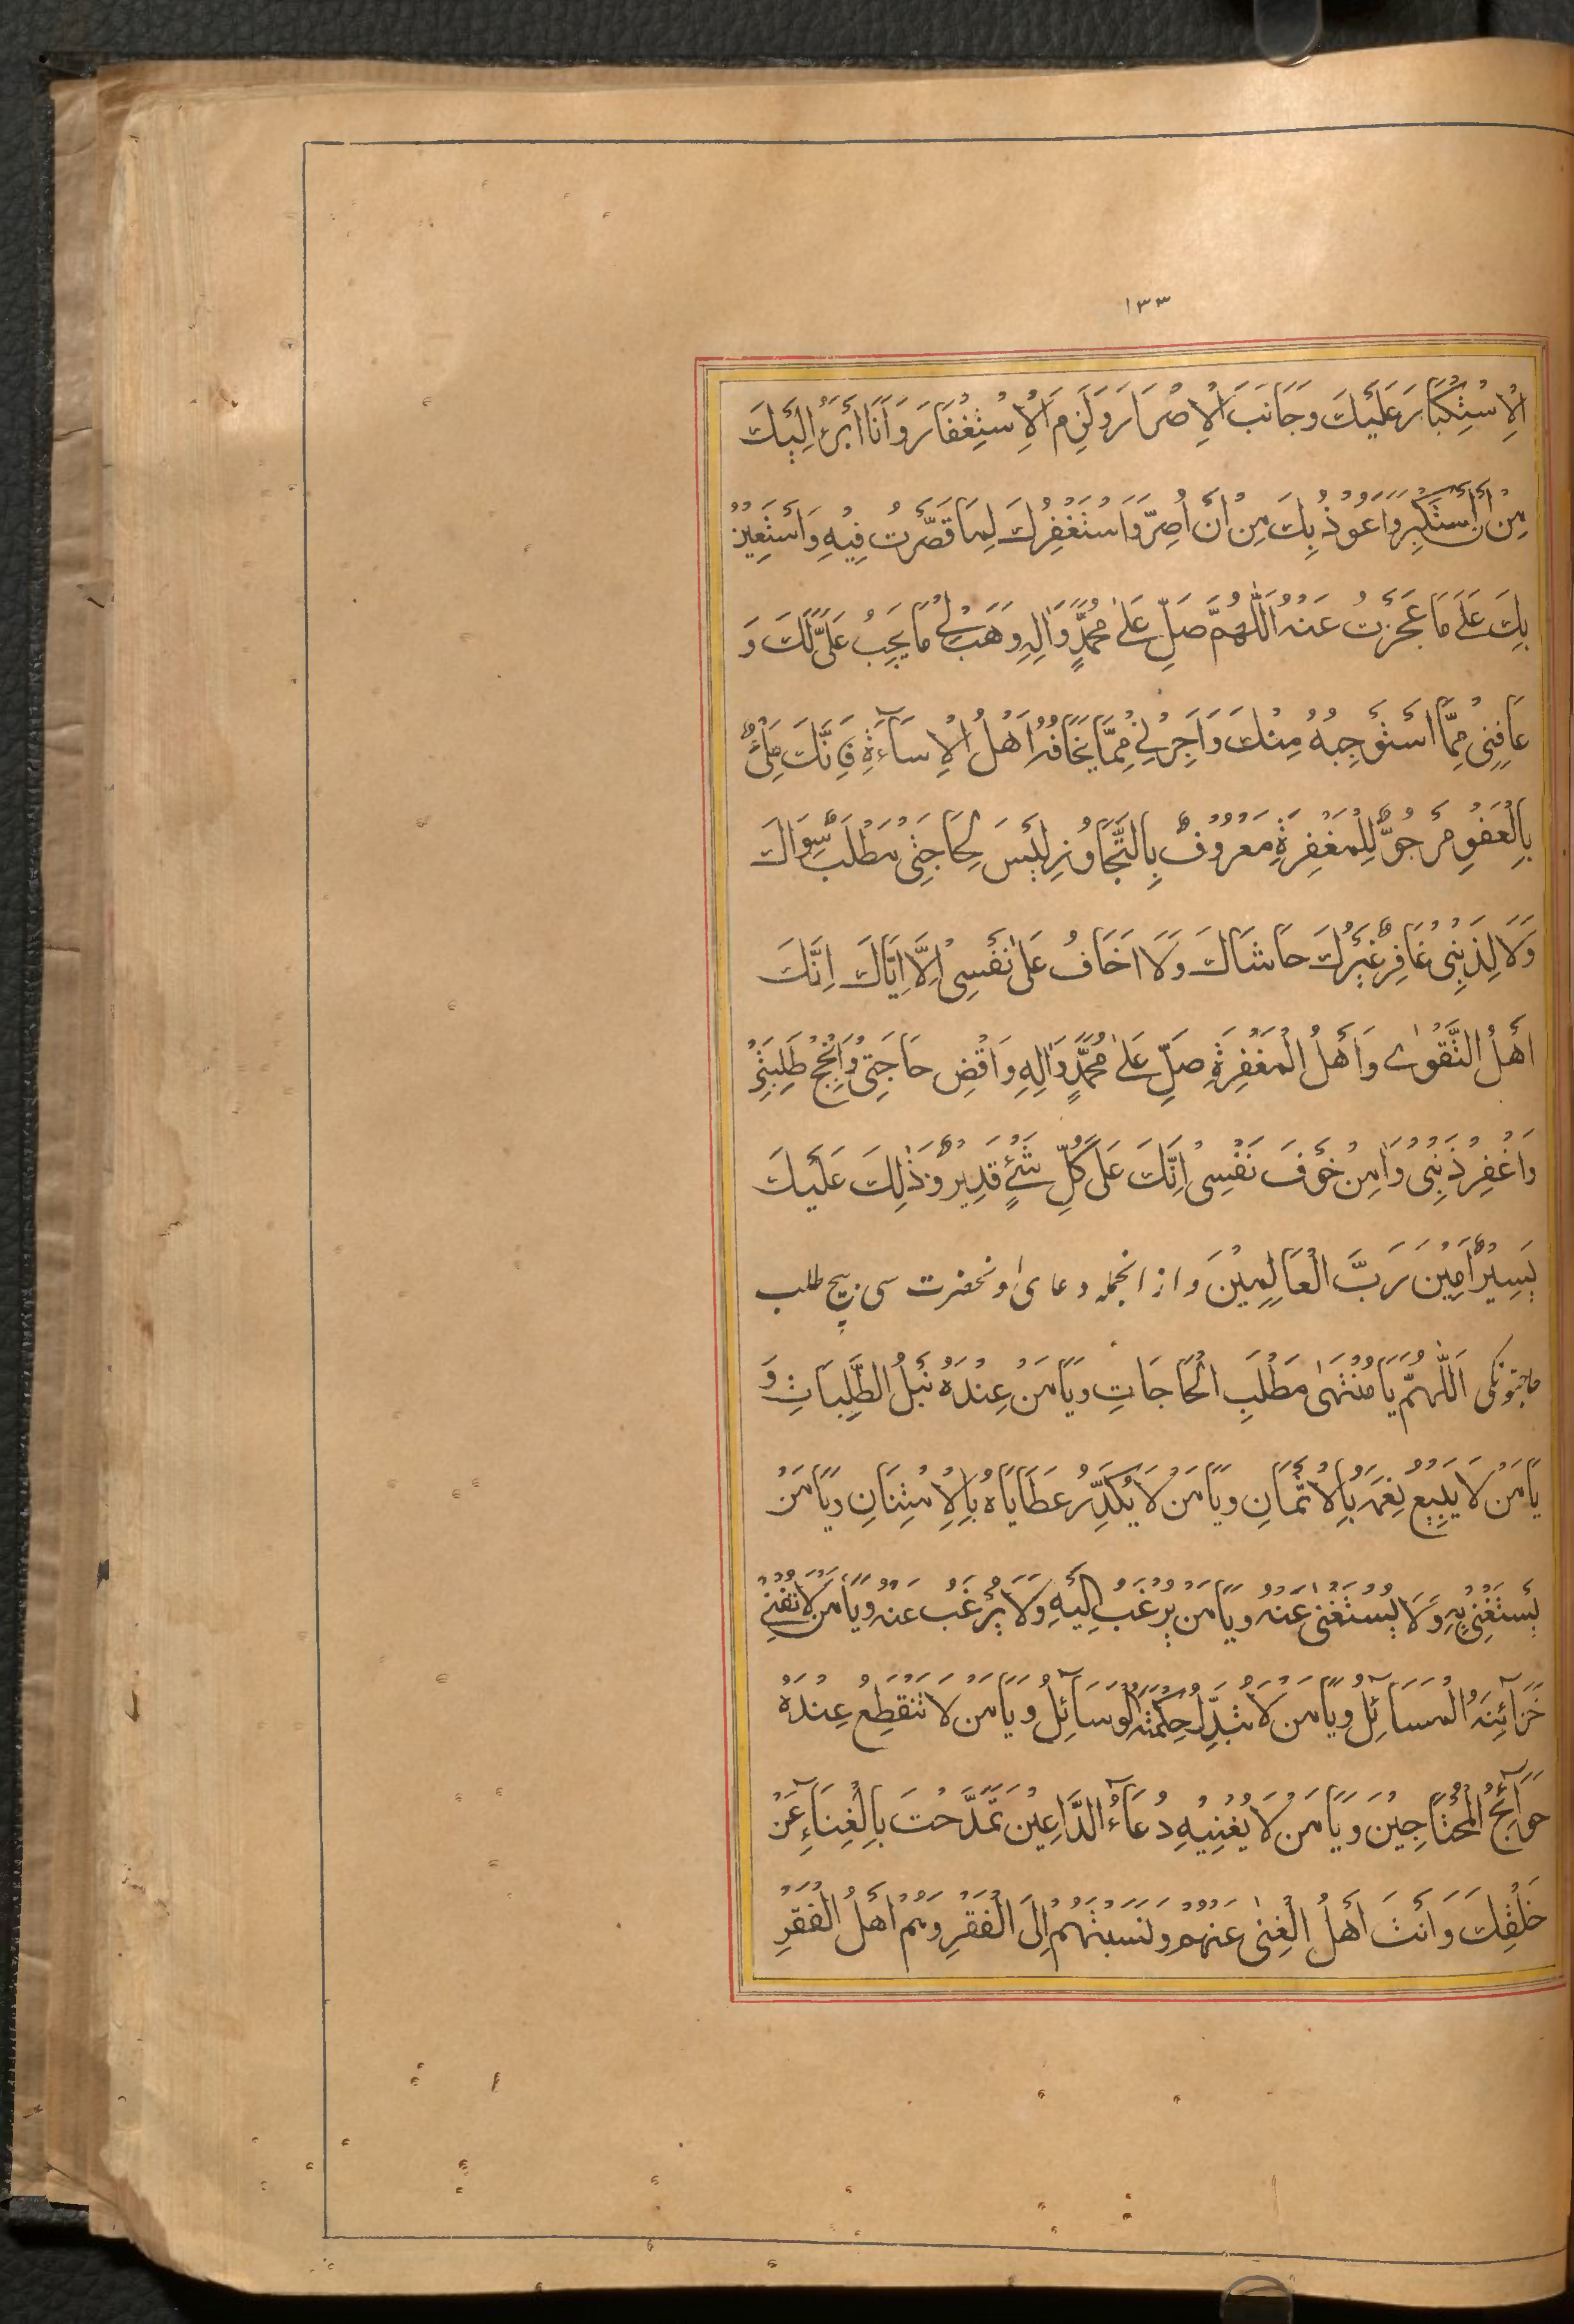 ١٣٣
الْاِسْتِكْبَارَ عَلَيْكَ وَجَانَبَ الْاِصْرَارَ وَلَزِمَ الْاِسْتِغْفَارَ وَاَنَا اَبْرَءُ اِلَيْكَ
مِنْ اَنْ اَسْتَكْبِرَ وَاَعُوْذُ بِكَ مِنْ اَنْ اُصِرَّ وَاَسْتَغْفِرُكَ لِمَا قَصَّرْتُ فِيْهِ وَاَسْتَعِيْنُ
بِكَ عَلٰى مَا عَجَزْتُ عَنْهُ اَللّٰهُمَّ صَلِّ عَلٰى مُحَمَّدٍ وَاٰلِهِ وَهَبْ لِيْ مَا يَجِبُ عَلَيَّ لَكَ وَ
عَافِنِيْ مِمَّا اَسْتَوْجِبُهُ مِنْكَ وَاَجِرْنِيْ مِمَّا يَخَافُهُ اَهْلُ الْاِسَآءَةِ فَاِنَّكَ مَلِيٌّ
بِالْعَفْوِ مَرْجُوٌّ لِلْمَغْفِرَةِ مَعْرُوْفٌ بِالتَّجَاوُزِ لَيْسَ لِحَاجَتِيْ مَطْلَبٌ سِوَاكَ
وَلَا لِذَنْبِيْ غَافِرٌ غَيْرُكَ حَاشَاكَ وَلَا اَخَافُ عَلٰى نَفْسِيْ اِلَّا اِيَّاكَ اِنَّكَ
اَهْلُ التَّقْوٰى وَاَهْلُ الْمَغْفِرَةِ صَلِّ عَلٰى مُحَمَّدٍ وَاٰلِهِ وَاقْضِ حَاجَتِيْ وَاَنْجِحْ طَلِبَتِيْ
وَاغْفِرْ ذَنْبِيْ وَاٰمِنْ خَوْفَ نَفْسِيْ اِنَّكَ عَلٰى كُلِّ شَيْءٍ قَدِيْرٌ وَذٰلِكَ عَلَيْكَ
يَسِيْرٌ اٰمِيْنَ رَبَّ الْعَالَمِيْنَ و از انجمله دعاى اونحضرت سى بيچ طلب
حاجتونكى اَللّٰهُمَّ يَا مُنْتَهٰى مَطْلَبِ الْحَاجَاتِ وَيَا مَنْ عِنْدَهُ نَيْلُ الطَّلِبَاتِ وَ
يَا مَنْ لَا يَبِيْعُ نِعَمَهُ بِالْاَثْمَانِ وَيَا مَنْ لَا يُكَدِّرُ عَطَايَاهُ بِالْاِمْتِنَانِ وَيَا مَنْ
يُسْتَغْنٰى بِهِ وَلَا يُسْتَغْنٰى عَنْهُ وَيَا مَنْ يُرْغَبُ اِلَيْهِ وَلَا يُرْغَبُ عَنْهُ وَيَا مَنْ لَا تُفْنِيْ
خَزَآئِنَهُ الْمَسَآئِلُ وَيَا مَنْ لَا تُبَدِّلُ حِكْمَتَهُ الْوَسَآئِلُ وَيَا مَنْ لَا تَنْقَطِعُ عِنْدَهُ
حَوَآئِجُ الْمُحْتَاجِيْنَ وَيَا مَنْ لَا يُعَنِّيْهِ دُعَآءُ الدَّاعِيْنَ تَمَدَّحْتَ بِالْغِنَاءِ عَنْ
خَلْقِكَ وَاَنْتَ اَهْلُ الْغِنٰى عَنْهُمْ وَنَسَبْتَهُمْ اِلَى الْفَقْرِ وَهُمْ اَهْلُ الْفَقْرِ